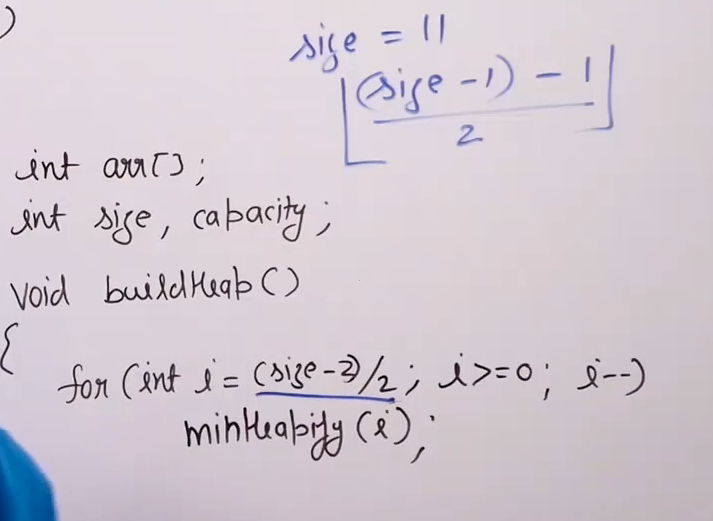 )
size = 11
⌊((size - 1) - 1)/2⌋
int arr[];
int size, capacity;
void buildHeap()
{
for (int i = (size-2)/2; i>=0; i--)
minHeapify(i);